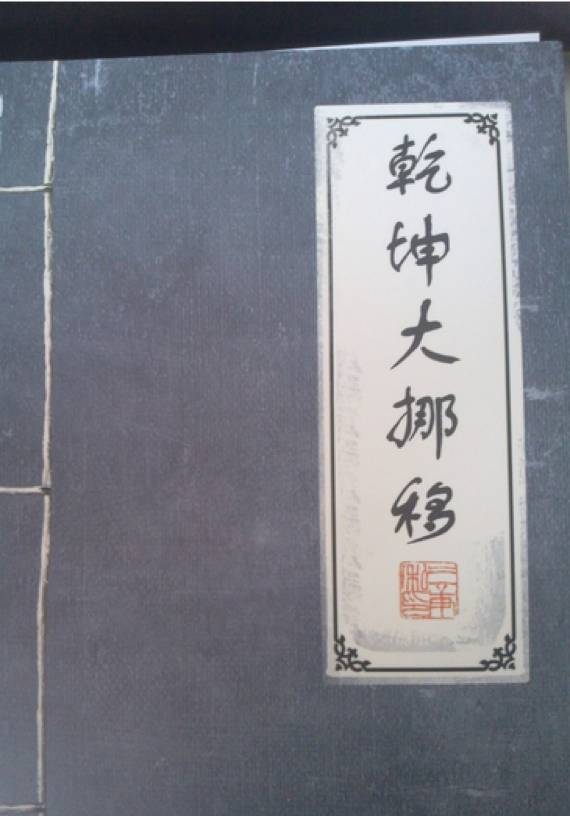 乾坤大挪移